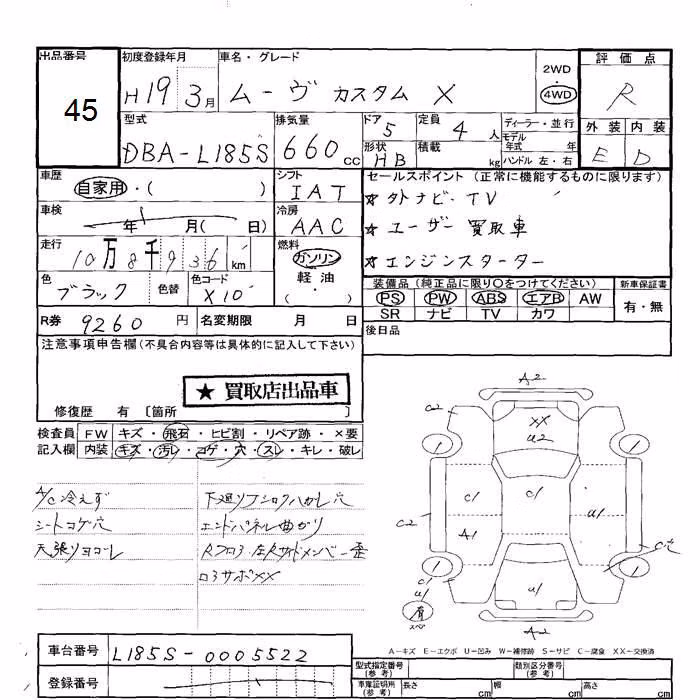 出品番号 初度登録年月 車名・グレード 評価点
45
H19 3月 ムーヴ カスタム X 2WD 4WD R
型式 排気量 ドア 5 定員 4 人 ディーラー・並行 外装 内装
DBA-L185S 660cc 形状 HB 積載 kg モデル年式 年 ハンドル 左・右 E D
車歴 自家用・( ) シフト IAT セールスポイント (正常に機能するものに限ります)
★外ナビ・TV
車検 年 月( 日) 冷房 AAC
★ユーザー買取車
走行 10万8千936km 燃料 ガソリン
★エンジンスターター
色 ブラック 色替 色コード X10 軽油・( )
装備品 (純正品に限り○をつけてください) 新車保証書
PS PW ABS エアB AW 有・無
SR ナビ TV カワ
R券 9260円 名変期限 月 日
後日品
注意事項申告欄(不具合内容等は具体的に記入して下さい)
★ 買取店出品車
修復歴 有 〔箇所 〕
検査員 FW キズ・飛石・ヒビ割・リペア跡・×要
記入欄 内装 キズ・汚レ・コゲ・穴・スレ・キレ・破レ
A/C冷えず
シートコゲ穴
天張りヨゴレ
エンドパネル曲がり
A2
C2
XX
U2
C1
C1
U1
C2
A1
U1
C1
U1
A2
A-キズ E-エクボ U-凹み W-補修跡 S-サビ C-腐食 XX-交換済
車台番号 L185S-0005522
登録番号
型式指定番号(参考) 類別区分番号(参考)
車庫証明用(参考) 長さ cm 幅 cm 高さ cm